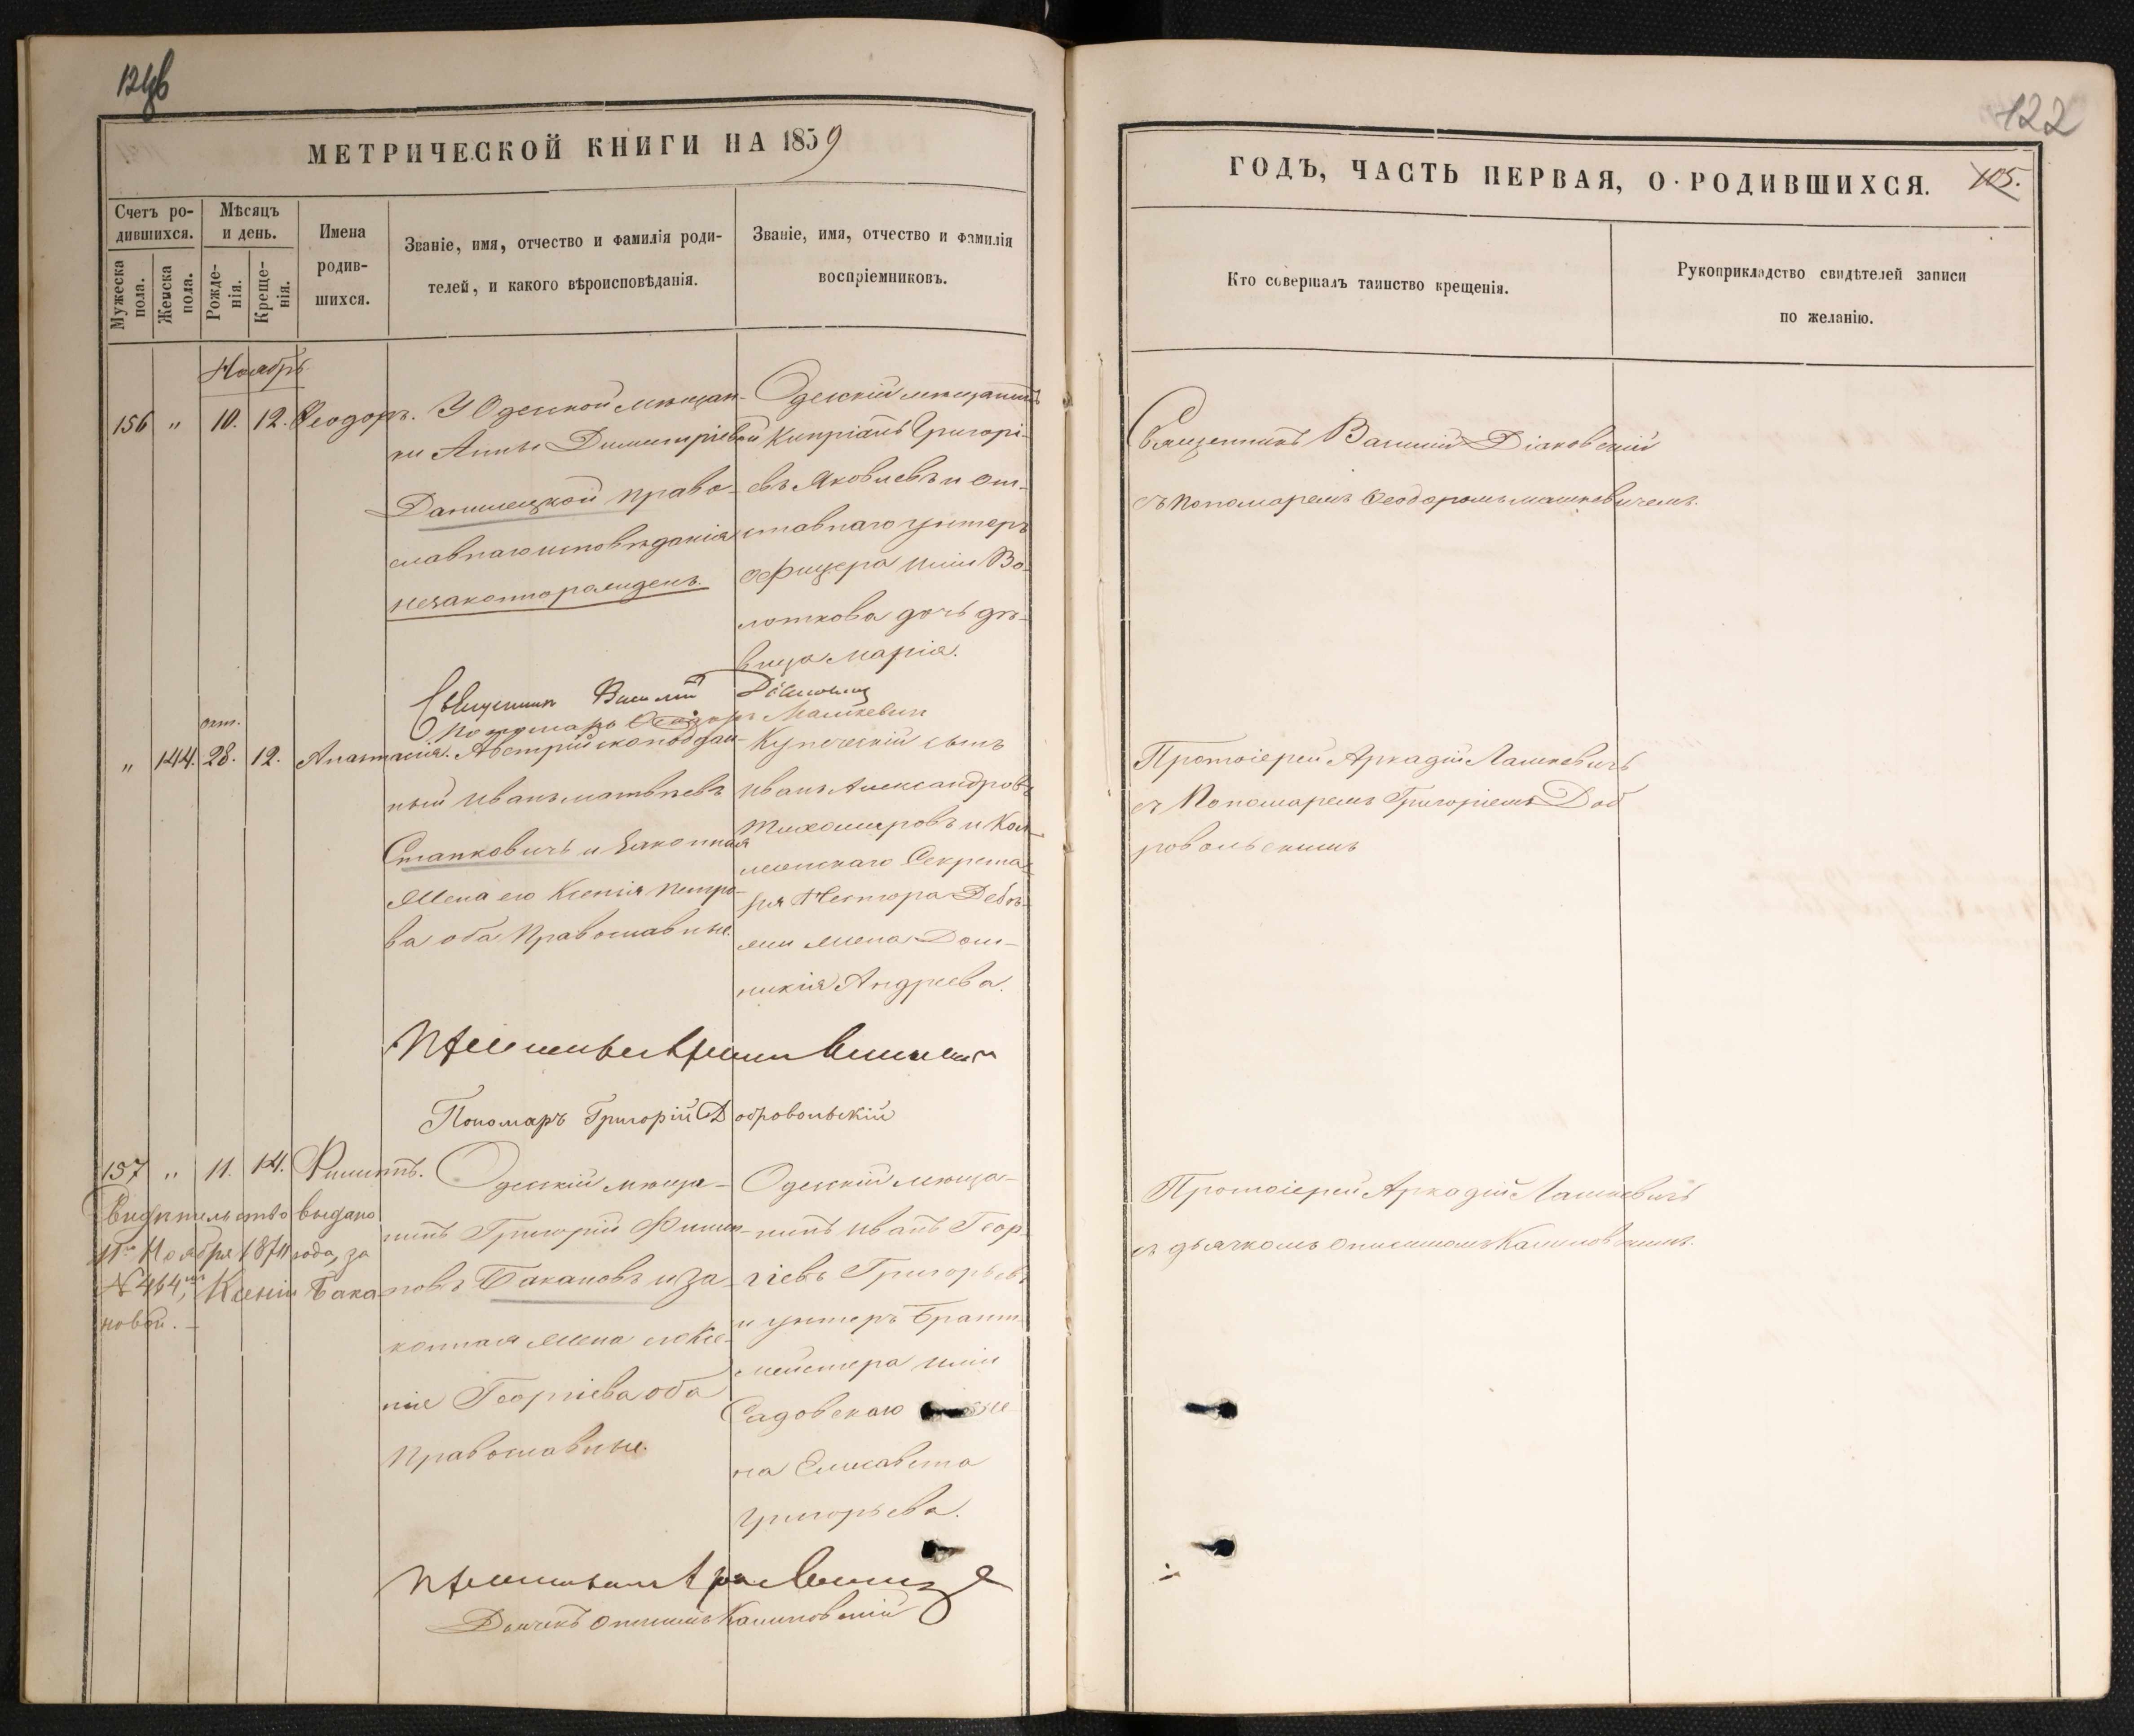 122
МЕТРИЧЕСКОЙ КНИГИ НА 1859
ГОДЪ, ЧАСТЬ ПЕРВАЯ, О РОДИВШИХСЯ.
105.
Счетъ ро-
дившихся.
Мужеска
пола.
Женска
пола.
Мѣсяцъ
и день.
Рожде-
нія.
Креще-
нія.
Имена
родив-
шихся.
Званіе, имя, отчество и фамилія роди-
телей, и какого вѣроисповѣданія.
Званіе, имя, отчество и фамилія
воспріемниковъ.
Кто совершалъ таинство крещенія.
Рукоприкладство свидѣтелей записи
по желанію.
Ноябрь
156 " 10. 12. Ѳеодоръ.
У Одесской мѣщан-
ки Анны Димитріевой
Данилецкой право-
славнаго исповѣданія
незаконнорожденъ.
Одесскій мѣщанинъ
Кипріанъ Григорі-
евъ Яковлевъ и от-
ставнаго унтеръ
офицера Иліи Во-
лоткова дочь дѣ-
вица Марія.
Священникъ Василій Діаковскій
съ пономаремъ Ѳеодоромъ Машкевичемъ.
Священникъ Василій Діаковскій
Пономарь Ѳеодоръ Машкевич
окт.
" 144. 28. 12. Анастасія.
Австрійскоподдан-
ный Иванъ Матвѣевъ
Станковичъ и законная
жена его Ксенія Петро-
ва оба православные.
Купеческій сынъ
Иванъ Александровъ
Тихомировъ и Кол-
лежскаго Секрета-
ря Нестора
жена Дом-
никія Андреева.
Протоіерей Аркадій Лашкевичъ
съ Пономаремъ Григоріемъ Доб
ровольскимъ
Пономарь Григорій Добровольскій
157 " 11. 14. Филиппъ.
Одесскій мѣща-
нинъ Григорій Филип-
повъ Бакановъ и за-
конная жена его Ксе-
нія Георгіева оба
православные.
Одесскій мѣща-
нинъ Иванъ Геор-
гіевъ Григорьевъ
и унтеръ Брант-
мейстера Иліи
Садовскаго же-
на Елисавета
Григорьева.
Свидѣтельство выдано
11го Ноября 1871 года, за
№ 464, Ксеніи Бака-
новой.
Протоіерей Аркадій Лашкевичъ
съ дьячкомъ Онисимомъ Калиновскимъ.
Дьячекъ Онисимъ Калиновскій